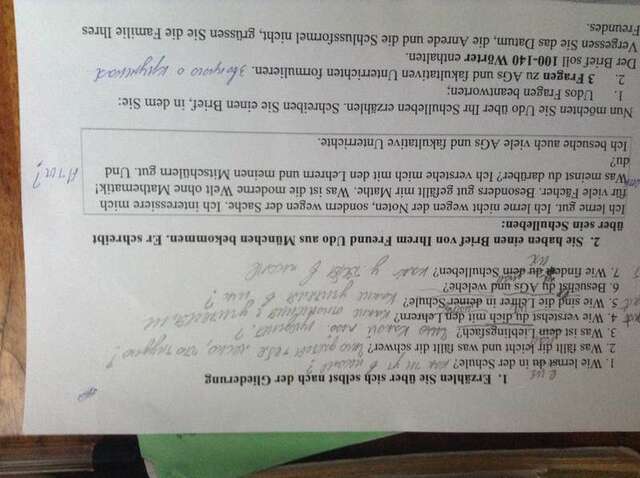 1. Erzählen Sie über sich selbst nach der Gliederung
1. Wie lernst du in der Schule? как ты уч в школе?
2. Was fällt dir leicht und was fällt dir schwer? что тебе легко, что трудно?
3. Was ist dein Lieblingsfach?
4. Wie verstehst du dich mit den Lehrern?
5. Wie sind die Lehrer in deiner Schule? какие учителя в
6. Besuchst du AGs und welche?
7. Wie findest du dein Schulleben? как у тебя в школе
2. Sie haben einen Brief von Ihrem Freund Udo aus München bekommen. Er schreibt
über sein Schulleben:
Ich lerne gut. Ich lerne nicht wegen der Noten, sondern wegen der Sache. Ich interessiere mich
für viele Fächer. Besonders gut gefällt mir Mathe. Was ist die moderne Welt ohne Mathematik!
Was meinst du darüber? Ich verstehe mich mit den Lehrern und meinen Mitschülern gut. Und
du?
Ich besuche auch viele AGs und fakultative Unterrichte.
Nun möchten Sie Udo über Ihr Schulleben erzählen. Schreiben Sie einen Brief, in dem Sie:
1. Udos Fragen beantworten;
2. 3 Fragen zu AGs und fakultativen Unterrichten formulieren. 3 вопроса о кружках
Der Brief soll 100-140 Wörter enthalten.
Vergessen Sie das Datum, die Anrede und die Schlussformel nicht, grüssen Sie die Familie Ihres
Freundes.